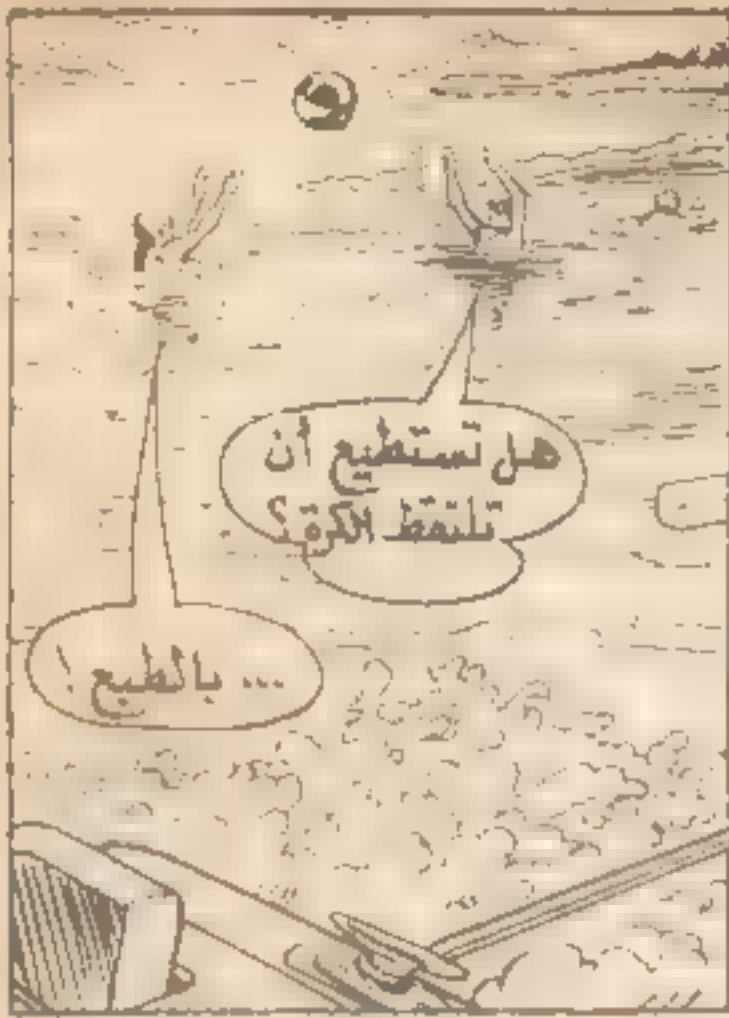 هل تستطيع أن
تلتقط الكرة؟
... بالطبع !